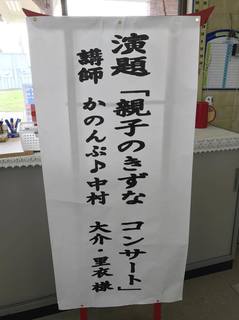 演題「親子のきずな コンサート」
講師 かのんぷ♪中村 大介・里衣 様